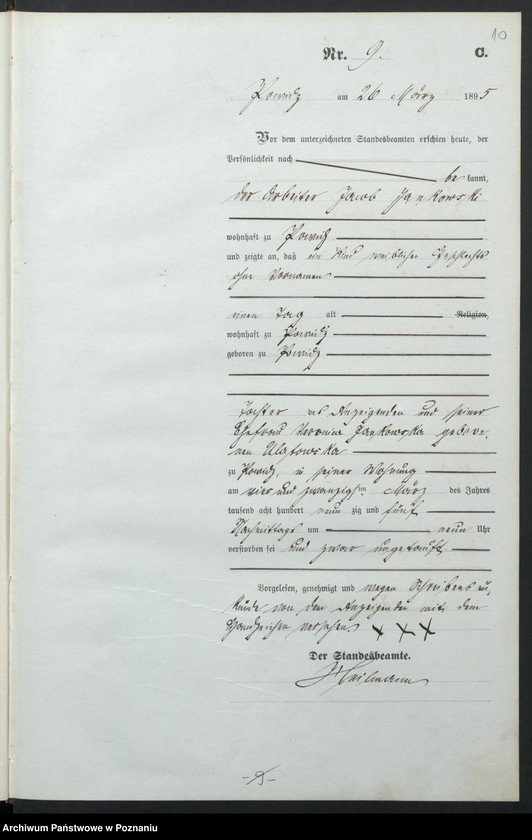 10
Nr. 9. C.
Powidz am 26 März 1895
Vor dem unterzeichneten Standesbeamten erschien heute, der
Persönlichkeit nach
be kannt,
der Arbeiter Jacob Jankowski
wohnhaft zu Powidz
und zeigte an, daß ein Kind weiblichen Geschlechts
ohne Vornamen
einen Tag alt Religion,
wohnhaft zu Powidz
geboren zu Powidz
Tochter des Anzeigenden und seiner
Ehefrau Veronica Jankowska gebore-
nen Ulatowska
zu Powidz, in seiner Wohnung
am vier und zwanzigsten März des Jahres
tausend acht hundert neun zig und fünf
Nachmittags um neun Uhr
verstorben sei und zwar ungetauft
Vorgelesen, genehmigt und wegen Schreibens un-
kunde von dem Anzeigenden mit dem
Handzeichen versehen XXX
Der Standesbeamte.